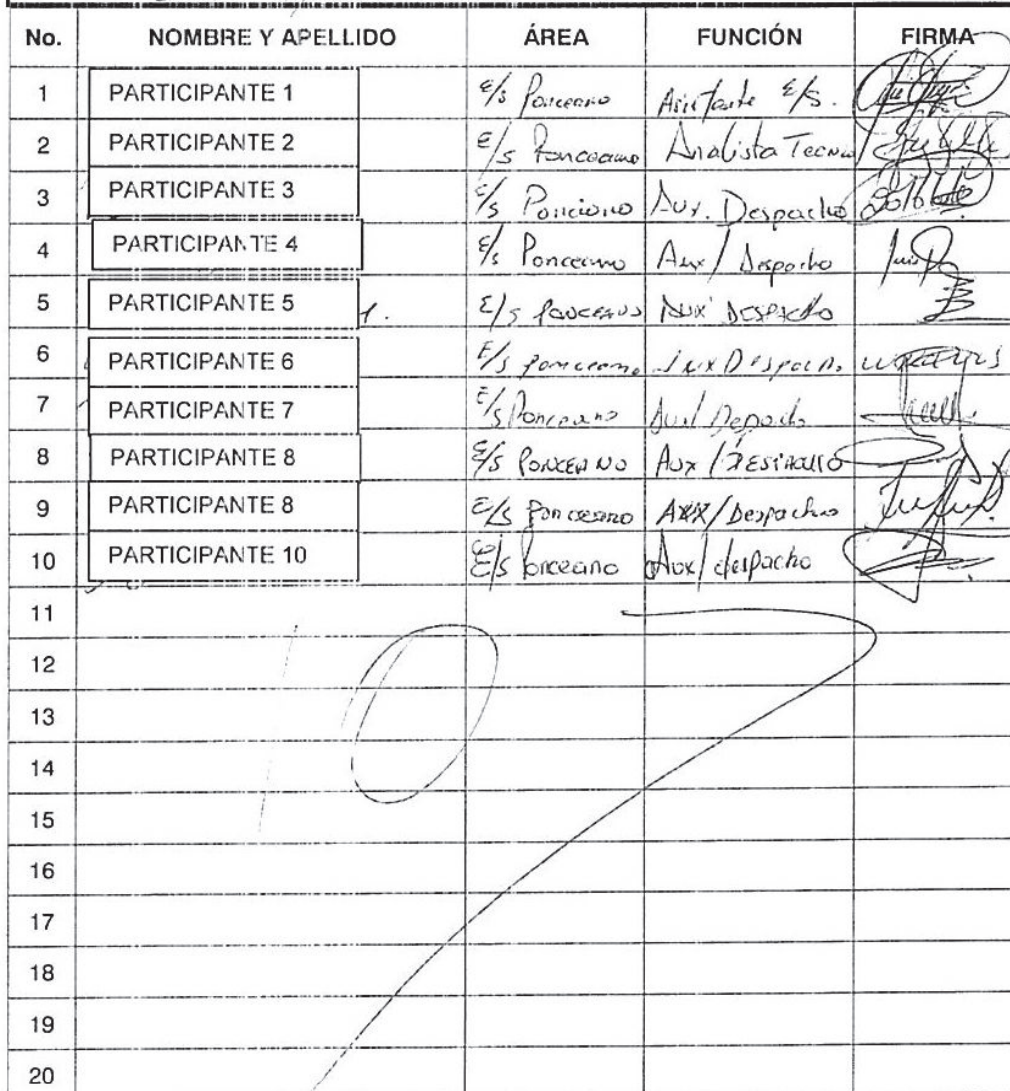 No. NOMBRE Y APELLIDO ÁREA FUNCIÓN FIRMA
1 PARTICIPANTE 1 E/S Ponceano Asistente E/S.
2 PARTICIPANTE 2 E/S Ponceano Analista Tecnico
3 PARTICIPANTE 3 E/S Ponciano Aux. Despacho
4 PARTICIPANTE 4 E/S Ponceano Aux/ Despacho Luis
5 PARTICIPANTE 5 E/S Ponceano Aux Despacho
6 PARTICIPANTE 6 E/s ponceano Aux Despacho
7 PARTICIPANTE 7 E/S Ponceano Aux/ Depacho
8 PARTICIPANTE 8 E/S PONCEANO Aux /
9 PARTICIPANTE 8 E/S Ponceano AXX/Despacho
10 PARTICIPANTE 10 E/S Ponceano Aux/ despacho
11
12
13
14
15
16
17
18
19
20
10